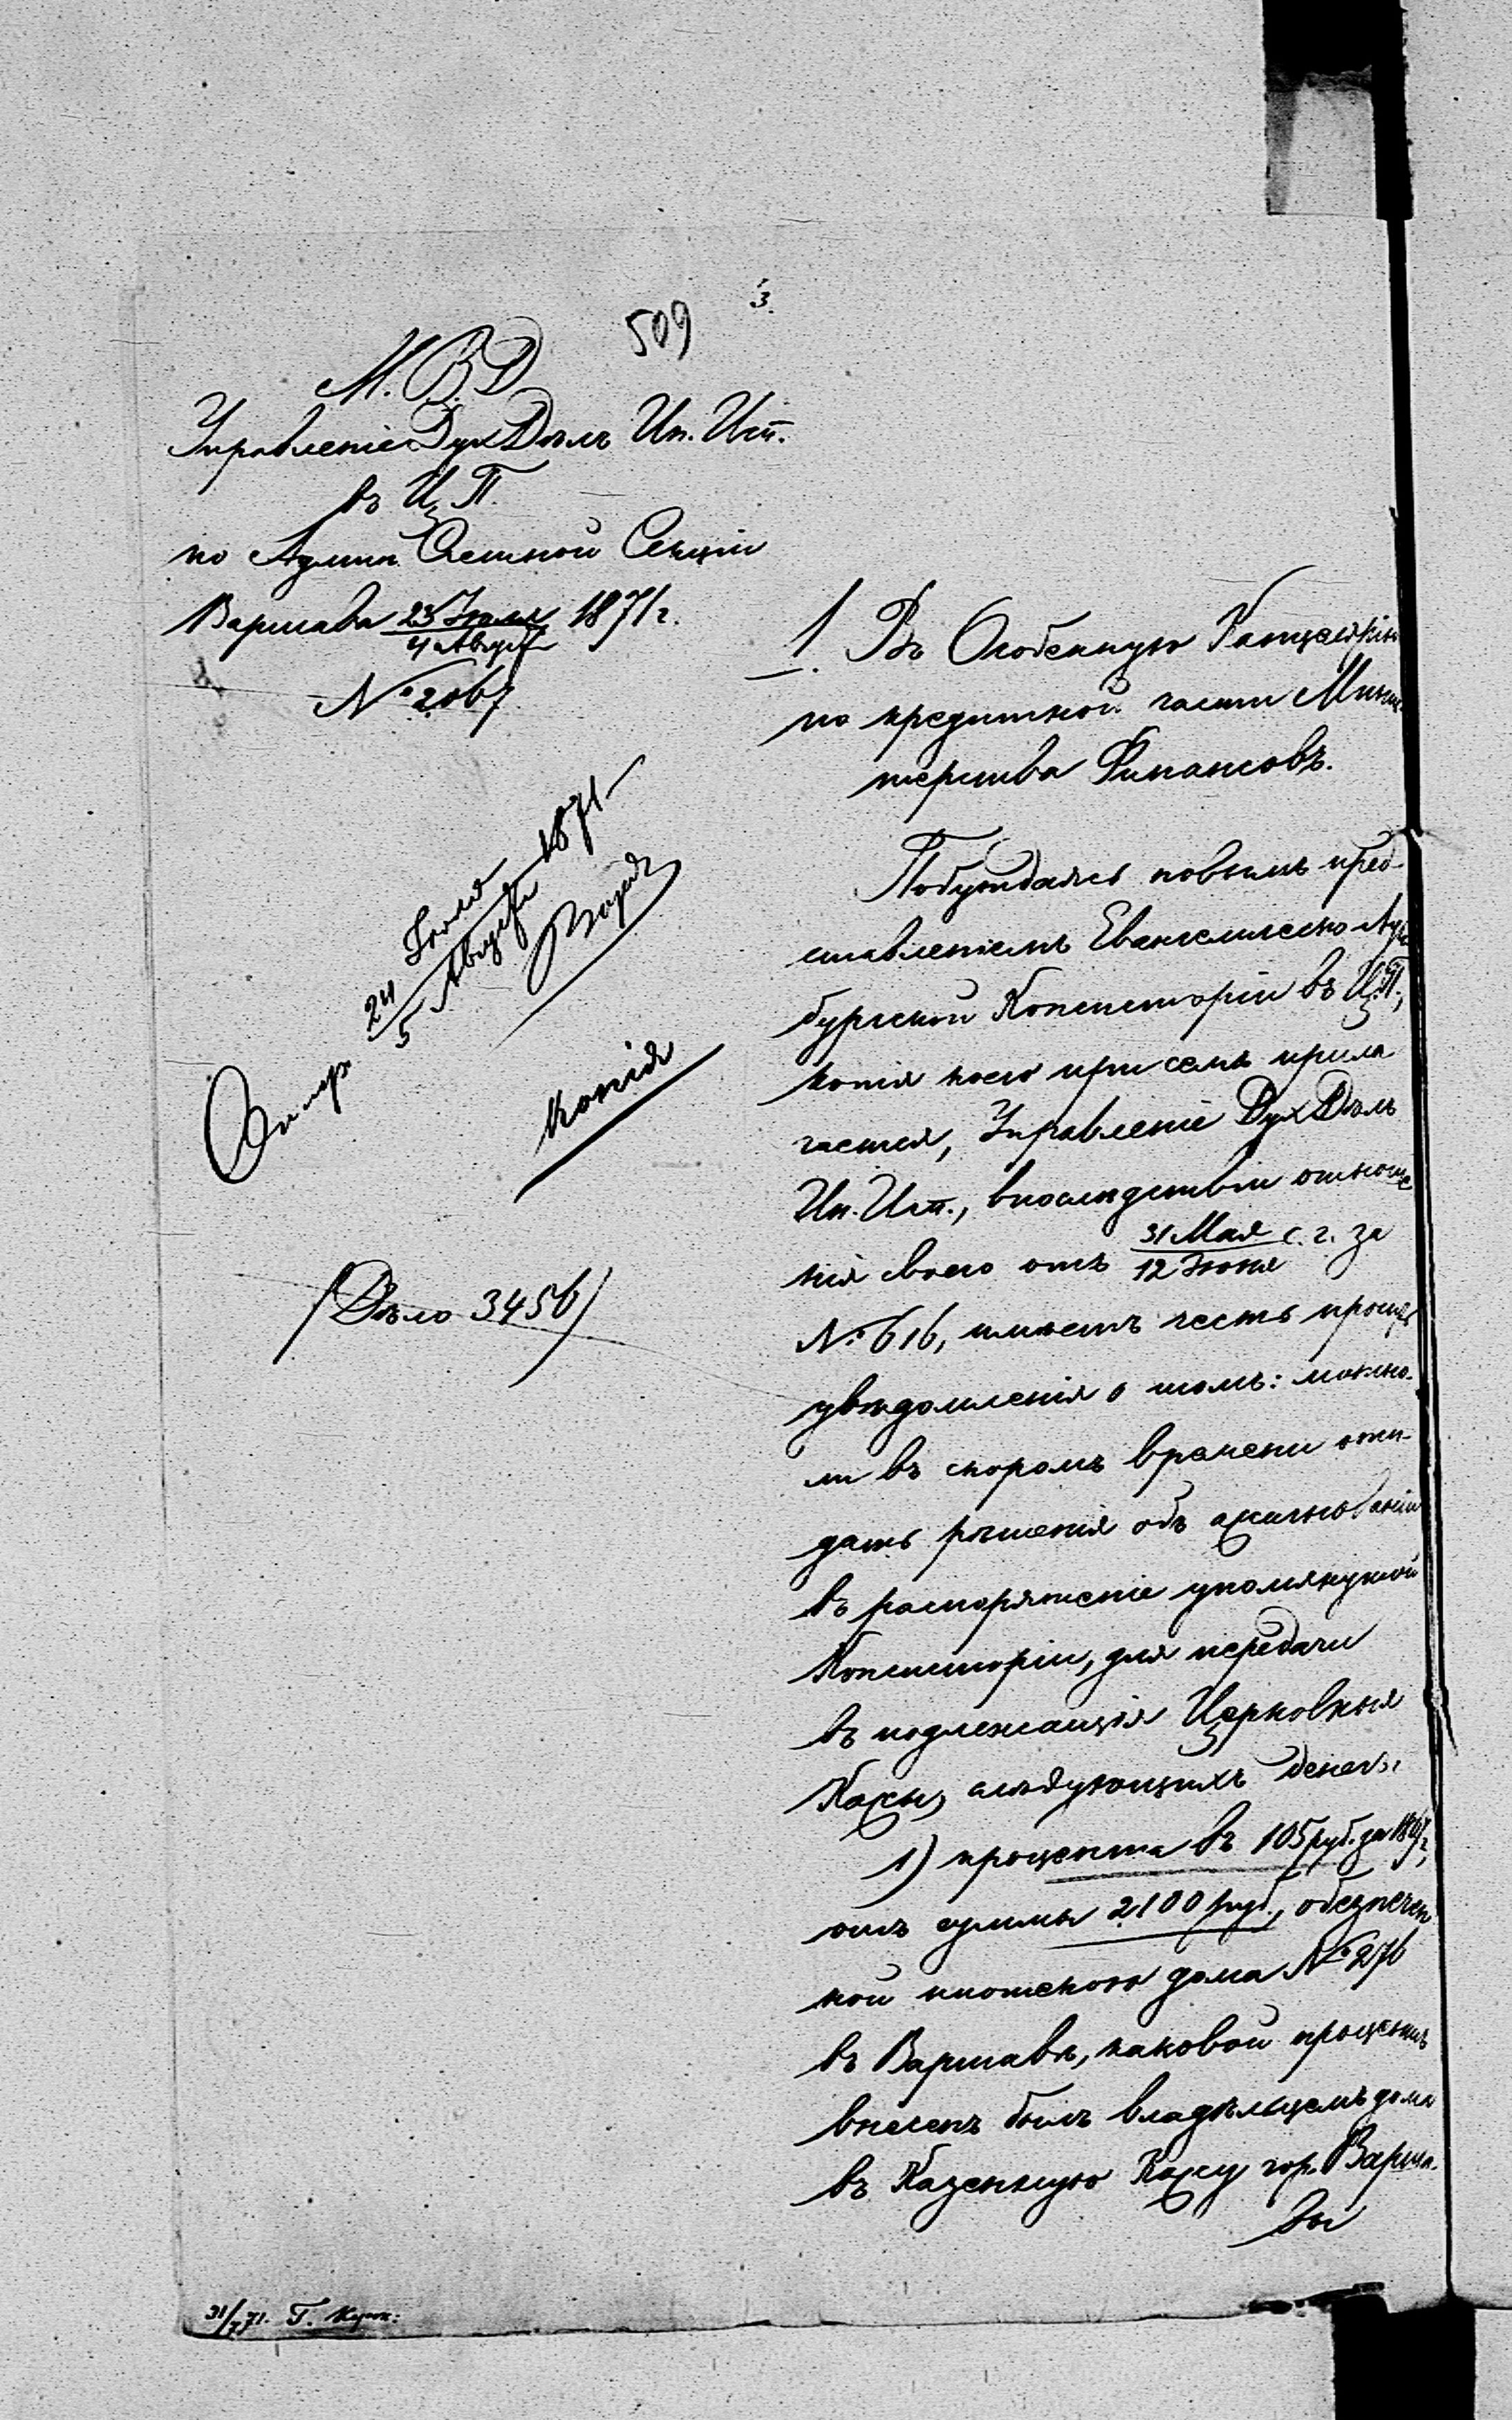 509
3.
М.В.Д.
Управленіе Дух Дѣлъ Ин. Исп.
въ Ц.П.
по Админ. Счетной Секціи
Варшава 23 Іюля / 4 Август 1871 г.
№ 2067
24 Іюля / 5 Август 1871
Копія
/Дѣло 3456/
1. Въ Особенную Канцелярію
по кредитной части Минис
терства Финансовъ.
Побуждаясь новымъ пред-
ставленіемъ Евангелическо Аугс
бургской Консисторіи въ Ц.П.,
копія коего при семъ прила
гается, Управленіе Дух Дѣлъ
Ин. Исп., впослѣдствіи отноше
нія своего отъ 31 Мая / 12 Іюня с. г. за
№ 616, имѣетъ честь просить
увѣдомленія о томъ: можно-
ли въ скоромъ времени ожи-
дать рѣшенія объ ассигнованіи
въ распоряженіе упомянутой
Консисторіи, для передачи
въ подлежащія Церковныя
Кассы, слѣдующихъ денегъ:
1) процента въ 105 руб. за 1867 г.,
отъ суммы 2100 руб., обезпечен
ной ипотекою дома № 276
въ Варшавѣ, каковой процентъ
внесенъ былъ владѣльцемъ дома
въ Казенную Кассу гор. Варша-
вы
31/7 71. Г.